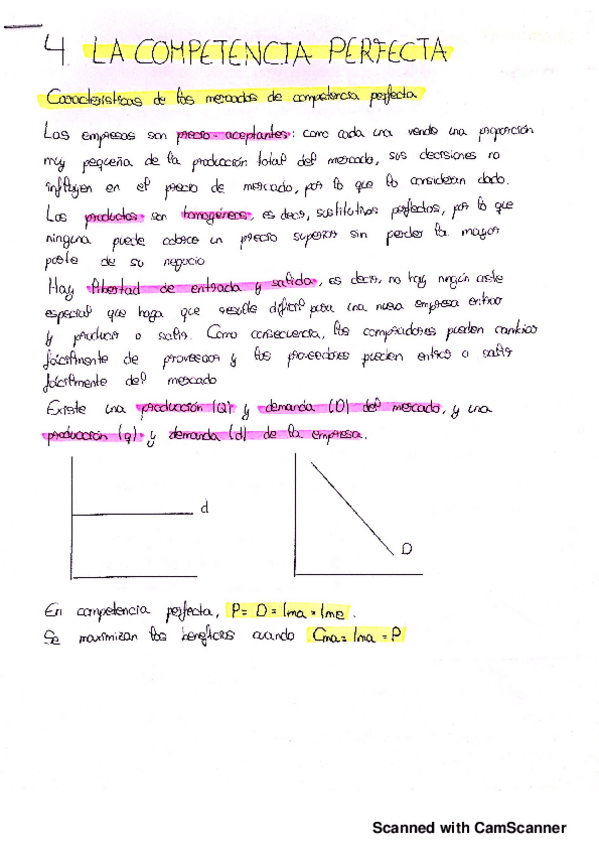 4. LA COMPETENCIA PERFECTA
Características de los mercados de competencia perfecta
Las empresas son precio-aceptantes: como cada una vende una proporción
muy pequeña de la producción total del mercado, sus decisiones no
influyen en el precio de mercado, por lo que lo consideran dado.
Los productos son homogéneos, es decir, sustitutivos perfectos, por lo que
ninguna puede cobrar un precio superior sin perder la mayor
parte de su negocio
Hay libertad de entrada y salida, es decir, no hay ningún coste
especial que haga que resulte difícil para una nueva empresa entrar
y producir o salir. Como consecuencia, los compradores pueden cambiar
fácilmente de proveedor y los proveedores pueden entrar o salir
fácilmente del mercado
Existe una producción (Q) y demanda (D) del mercado, y una
producción (q) y demanda (d) de la empresa.
d
D
En competencia perfecta, P = D = Ima = Ime.
Se maximizan los beneficios cuando Cma = Ima = P
Scanned with CamScanner